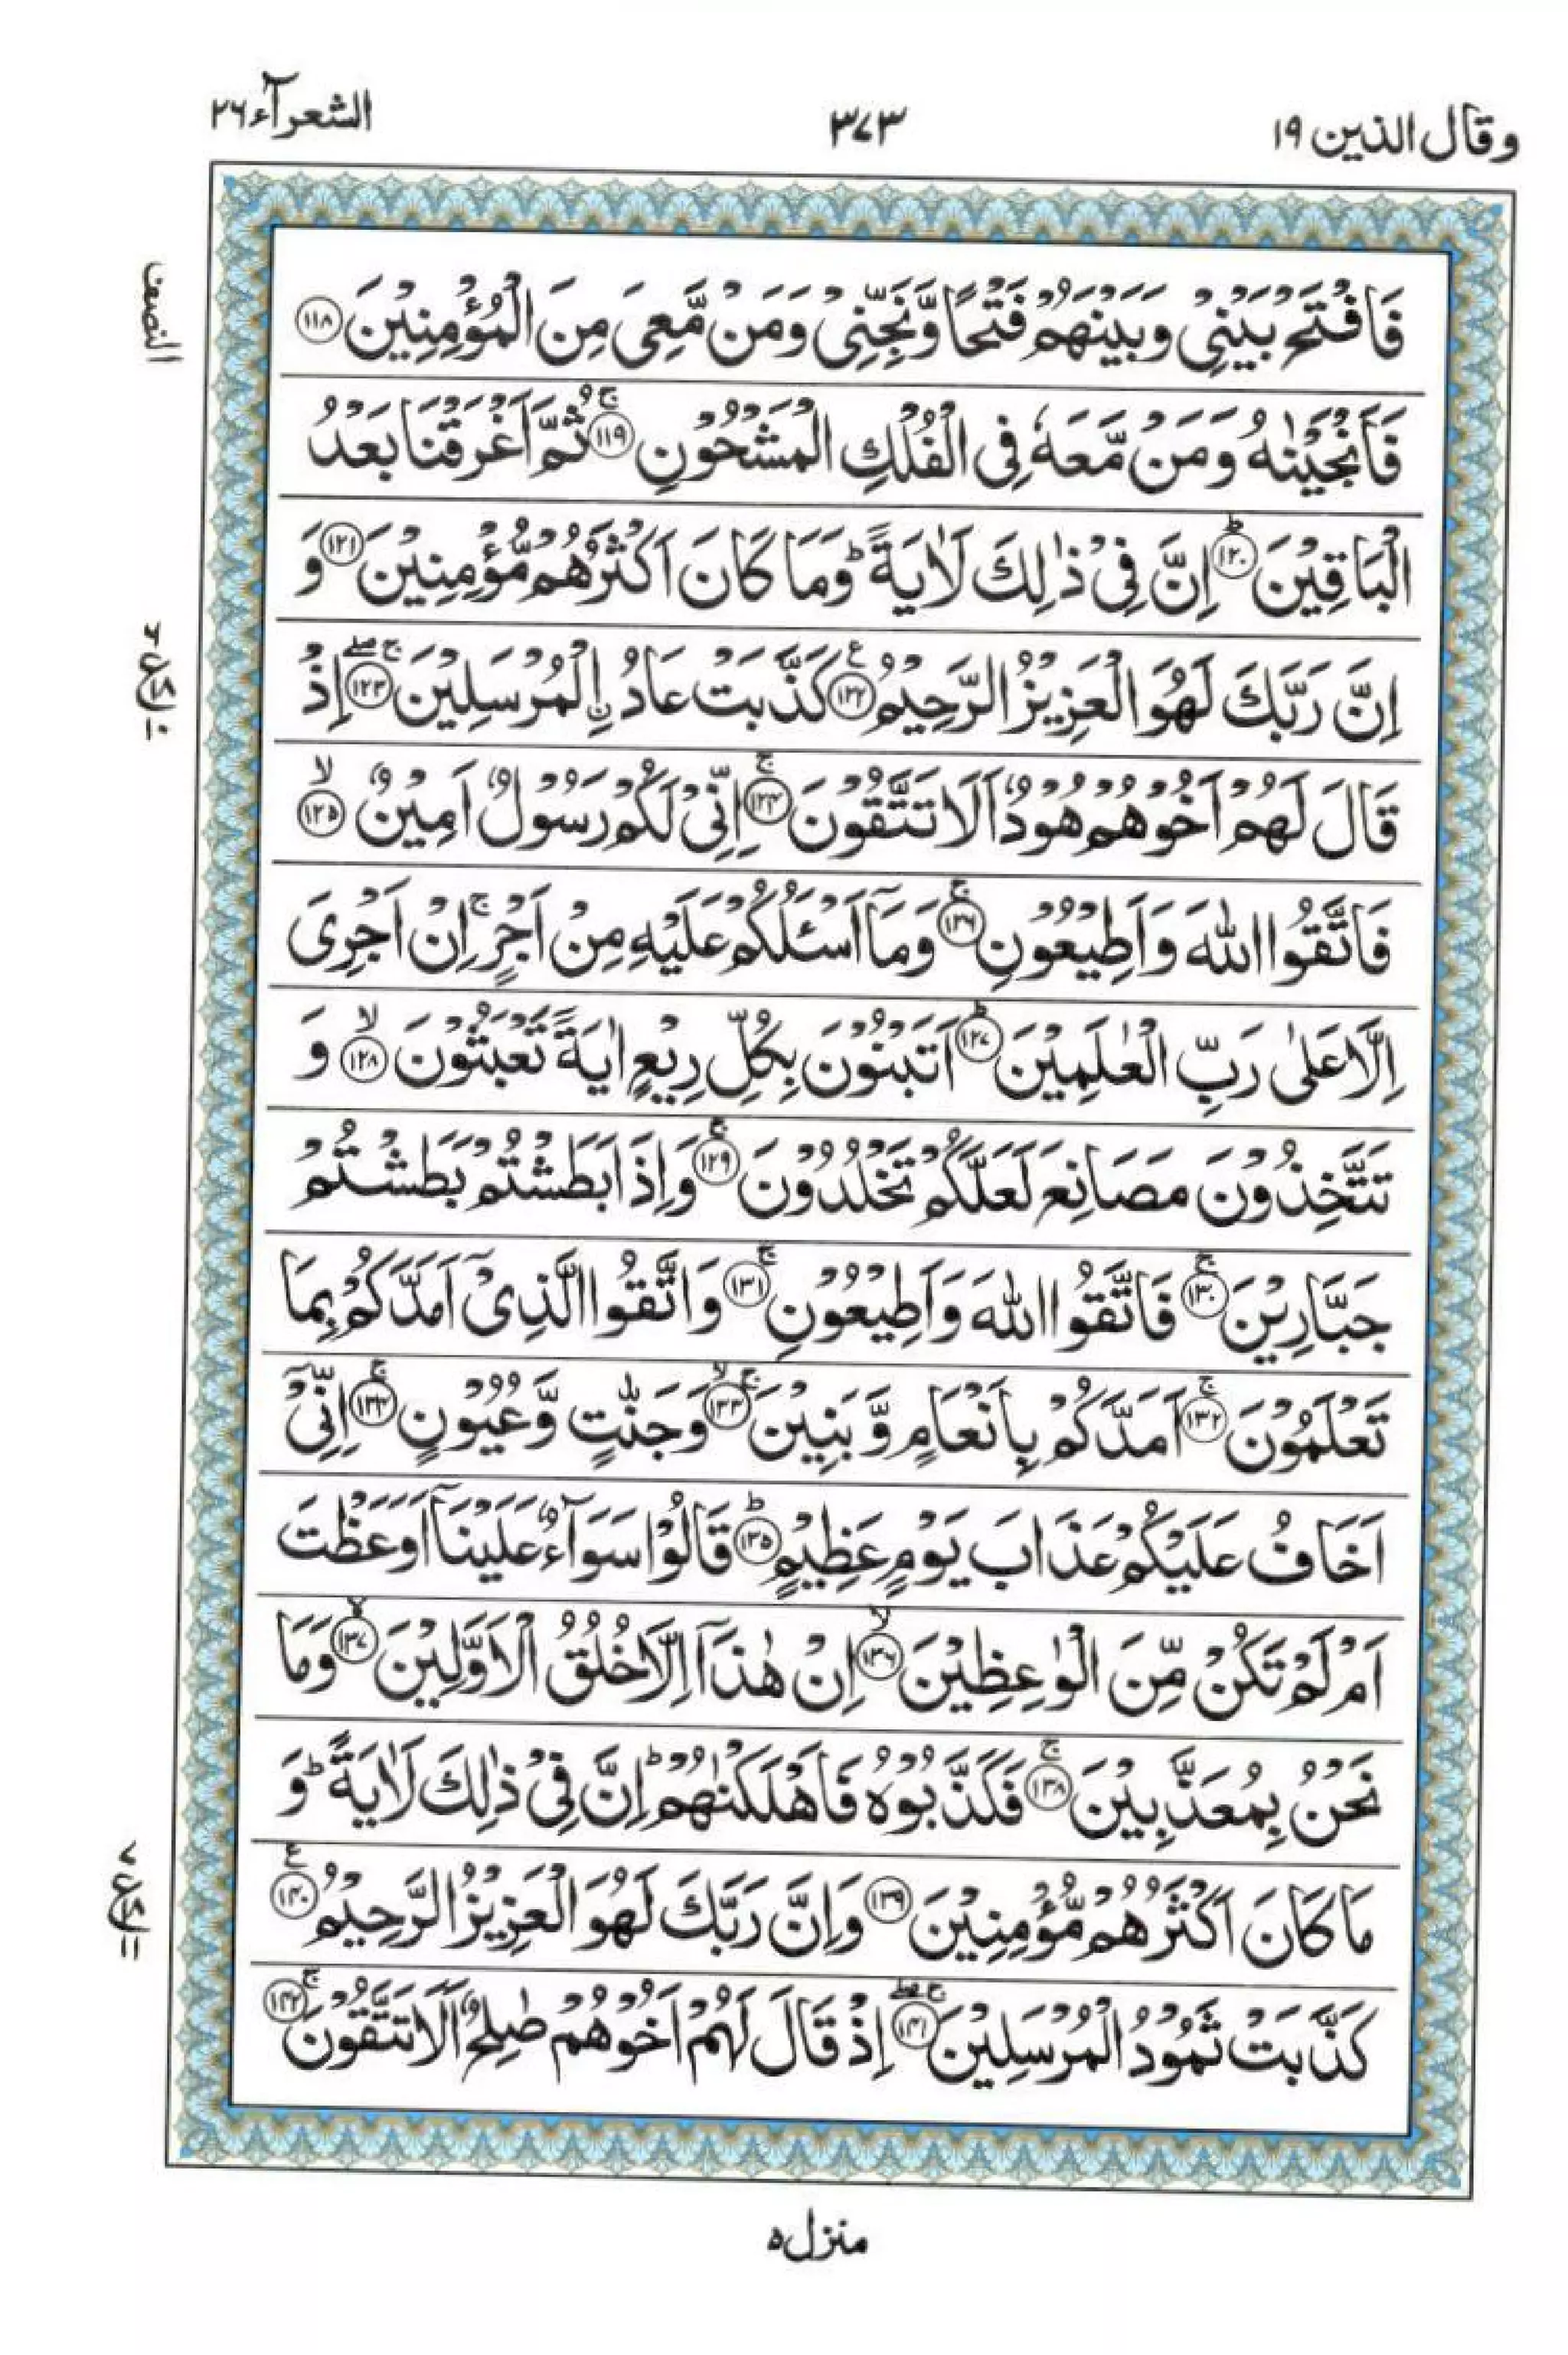 وقال الذين ١٩
٣٧٣
الشعرآء ٢٦
فَافْتَحْ بَيْنِيْ وَبَيْنَهُمْ فَتْحًا وَّنَجِّنِيْ وَمَنْ مَّعِيَ مِنَ الْمُؤْمِنِيْنَ ١١٨
النصف
فَاَنْجَيْنٰهُ وَمَنْ مَّعَهٗ فِي الْفُلْكِ الْمَشْحُوْنِ ج ١١٩ ثُمَّ اَغْرَقْنَا بَعْدُ
الْبَاقِيْنَ ط ١٢٠ اِنَّ فِيْ ذٰلِكَ لَاٰيَةً ط وَمَا كَانَ اَكْثَرُهُمْ مُّؤْمِنِيْنَ ١٢١ وَ
اِنَّ رَبَّكَ لَهُوَ الْعَزِيْزُ الرَّحِيْمُ ع ١٢٢ كَذَّبَتْ عَادُ ࣙالْمُرْسَلِيْنَ ج صلے ١٢٣ اِذْ
قَالَ لَهُمْ اَخُوْهُمْ هُوْدٌ اَلَا تَتَّقُوْنَ ج ١٢٤ اِنِّيْ لَكُمْ رَسُوْلٌ اَمِيْنٌ لا ١٢٥
فَاتَّقُوا اللّٰهَ وَاَطِيْعُوْنِ ج ١٢٦ وَمَآ اَسْـَٔلُكُمْ عَلَيْهِ مِنْ اَجْرٍ ج اِنْ اَجْرِيَ
اِلَّا عَلٰى رَبِّ الْعٰلَمِيْنَ ط ١٢٧ اَتَبْنُوْنَ بِكُلِّ رِيْعٍ اٰيَةً تَعْبَثُوْنَ لا ١٢٨ وَ
تَتَّخِذُوْنَ مَصَانِعَ لَعَلَّكُمْ تَخْلُدُوْنَ ج ١٢٩ وَاِذَا بَطَشْتُمْ بَطَشْتُمْ
جَبَّارِيْنَ ج ١٣٠ فَاتَّقُوا اللّٰهَ وَاَطِيْعُوْنِ ج ١٣١ وَاتَّقُوا الَّذِيْٓ اَمَدَّكُمْ بِمَا
تَعْلَمُوْنَ ج ١٣٢ اَمَدَّكُمْ بِاَنْعَامٍ وَّبَنِيْنَ ج لا ١٣٣ وَجَنّٰتٍ وَّعُيُوْنٍ ج ١٣٤ اِنِّيْٓ
اَخَافُ عَلَيْكُمْ عَذَابَ يَوْمٍ عَظِيْمٍ ط ١٣٥ قَالُوْا سَوَآءٌ عَلَيْنَآ اَوَعَظْتَ
اَمْ لَمْ تَكُنْ مِّنَ الْوٰعِظِيْنَ لا ١٣٦ اِنْ هٰذَآ اِلَّا خُلُقُ الْاَوَّلِيْنَ لا ١٣٧ وَمَا
نَحْنُ بِمُعَذَّبِيْنَ ج ١٣٨ فَكَذَّبُوْهُ فَاَهْلَكْنٰهُمْ ط اِنَّ فِيْ ذٰلِكَ لَاٰيَةً ط وَ
مَا كَانَ اَكْثَرُهُمْ مُّؤْمِنِيْنَ ١٣٩ وَاِنَّ رَبَّكَ لَهُوَ الْعَزِيْزُ الرَّحِيْمُ ع ١٤٠
كَذَّبَتْ ثَمُوْدُ الْمُرْسَلِيْنَ ج صلے ١٤١ اِذْ قَالَ لَهُمْ اَخُوْهُمْ صٰلِحٌ اَلَا تَتَّقُوْنَ ج ١٤٢
منزل ٥